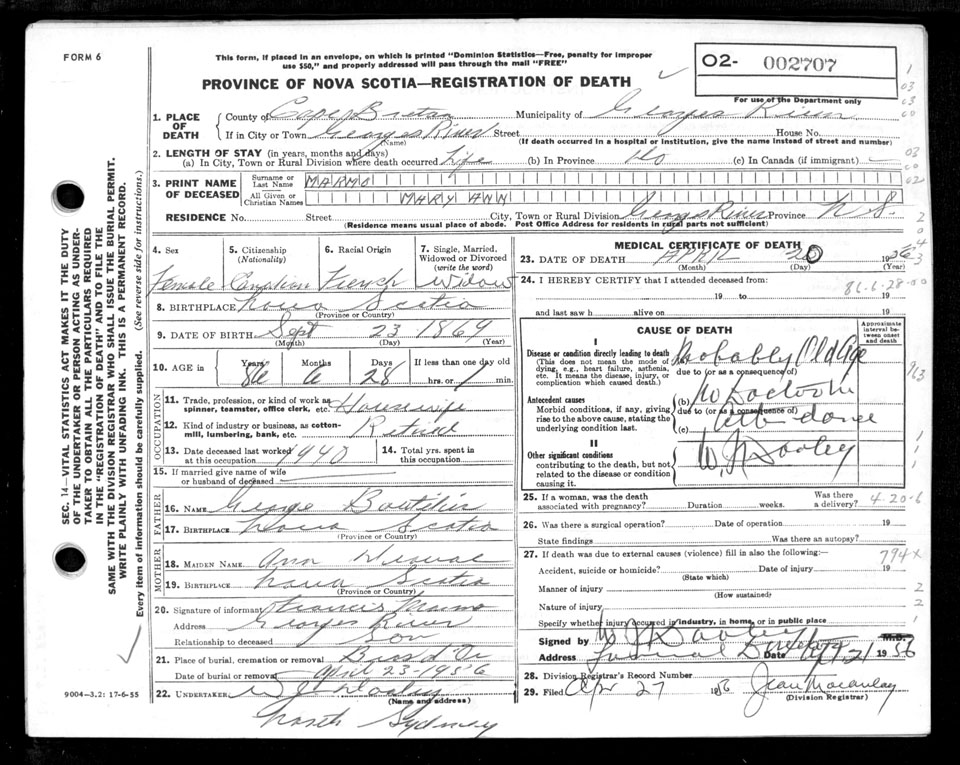 FORM 6
This form, if placed in an envelope, on which is printed "Dominion Statistics—Free, penalty for improper
use $50," and properly addressed will pass through the mail "FREE"
PROVINCE OF NOVA SCOTIA—REGISTRATION OF DEATH
O2- 002707
For use of the Department only
1. PLACE OF DEATH
County of Cape Breton Municipality of Georges River
If in City or Town Georges River Street House No.
(Name) (If death occurred in a hospital or institution, give the name instead of street and number)
2. LENGTH OF STAY (in years, months and days)
(a) In City, Town or Rural Division where death occurred Life (b) In Province do (c) In Canada (if immigrant) —
3. PRINT NAME OF DECEASED
Surname or Last Name MARMO
All Given or Christian Names MARY ANN
RESIDENCE No. Street City, Town or Rural Division Georges River Province N S.
(Residence means usual place of abode. Post Office Address for residents in rural parts not sufficient)
4. Sex Female
5. Citizenship (Nationality) Canadian
6. Racial Origin French
7. Single, Married, Widowed or Divorced (write the word) Widow
8. BIRTHPLACE Nova Scotia
(Province or Country)
9. DATE OF BIRTH Sept 23 1869
(Month) (Day) (Year)
10. AGE in Years 86 Months 6 Days 28 If less than one day old
hrs. or min.
OCCUPATION
11. Trade, profession, or kind of work as spinner, teamster, office clerk, etc. Housewife
12. Kind of industry or business, as cotton-mill, lumbering, bank, etc. Retired
13. Date deceased last worked at this occupation 1940
14. Total yrs. spent in this occupation
15. If married give name of wife or husband of deceased —
FATHER
16. NAME George Boutilier
17. BIRTHPLACE Nova Scotia
(Province or Country)
MOTHER
18. MAIDEN NAME Ann
19. BIRTHPLACE Nova Scotia
(Province or Country)
20. Signature of informant Francis Marmo
Address Georges River
Relationship to deceased Son
21. Place of burial, cremation or removal Bras d'Or
Date of burial or removal April 23 1956
22. UNDERTAKER W J Dooley
(Name and address)
North Sydney
MEDICAL CERTIFICATE OF DEATH
23. DATE OF DEATH APRIL 20 1956
(Month) (Day) (Year)
24. I HEREBY CERTIFY that I attended deceased from:
86-6-28-00
19 to 19
and last saw h alive on 19
CAUSE OF DEATH
Approximate interval between onset and death
I
Disease or condition directly leading to death
(This does not mean the mode of dying, e.g., heart failure, asthenia, etc. It means the disease, injury, or complication which caused death.)
(a) Probably Old Age
due to (or as a consequence of)
Antecedent causes
Morbid conditions, if any, giving rise to the above cause, stating the underlying condition last.
(b) No Doctor in
due to (or as a consequence of)
(c) Attendance
II
Other significant conditions
contributing to the death, but not related to the disease or condition causing it.
W. J. Dooley
25. If a woman, was the death associated with pregnancy? Duration weeks. Was there a delivery?
4-20-6
26. Was there a surgical operation? Date of operation 19
State findings Was there an autopsy?
27. If death was due to external causes (violence) fill in also the following:—
794x
Accident, suicide or homicide? Date of injury 19
(State which)
Manner of injury
(How sustained)
Nature of injury
Specify whether injury occurred in industry, in home, or in public place
Signed by W J Dooley M.D.
Address Funeral Director Date Apr. 21 1956
28. Division Registrar's Record Number
29. Filed Apr 27 1956 Jean Macaulay
(Division Registrar)
SEC. 14—VITAL STATISTICS ACT MAKES IT THE DUTY
OF THE UNDERTAKER OR PERSON ACTING AS UNDER-
TAKER TO OBTAIN ALL THE PARTICULARS REQUIRED
IN THE "REGISTRATION OF DEATH" AND TO FILE THE
SAME WITH THE DIVISION REGISTRAR WHO SHALL ISSUE THE BURIAL PERMIT.
WRITE PLAINLY WITH UNFADING INK. THIS IS A PERMANENT RECORD.
Every item of information should be carefully supplied. (See reverse side for instructions.)
9004—3.2: 17-6-55